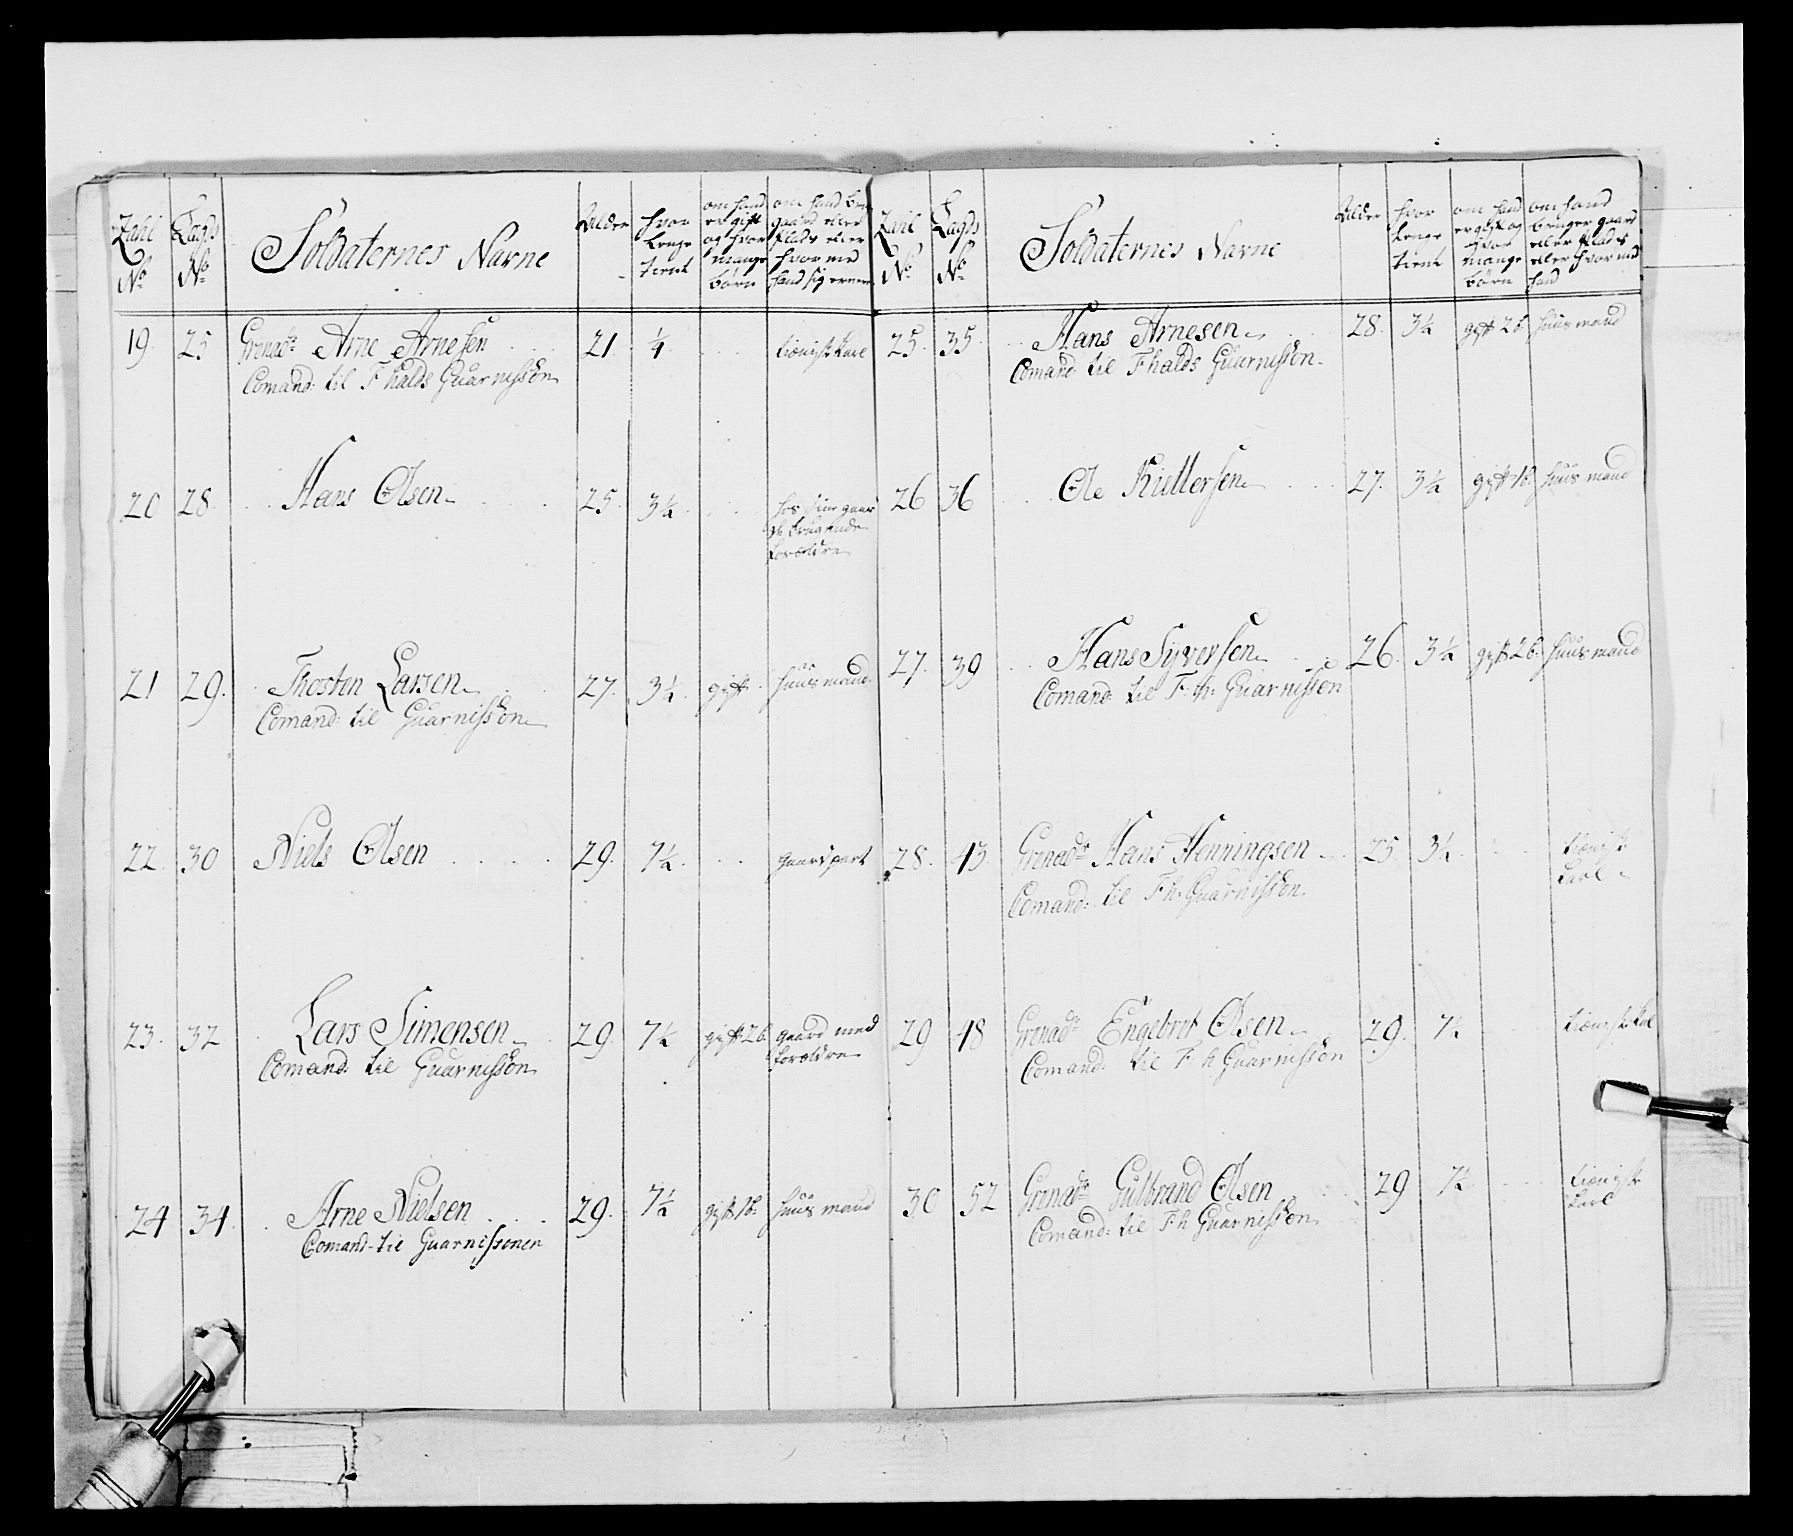 Zahl No
Lægds No
Soldaternes Navne
Alder
hvor lenge tient
om hand er gift og hvor mange børn
om hand bru gaard eller plads eller hvor med hand sig ernerer
19. 25 Grenadr Arne Arnesen 21. ¼ tienistkarl
Comand: til Fhalds Guarnisson
20 28. Hans Olsen 25. 3¼ hos sine gaard brugende forældre
21 29. Thosten Larsen 27. 3¼ gift huusmand
Comand: til Guarnisson
22. 30 Niels Olsen 29. 7¼ gaardpart
23. 32 Lars Simensen 29. 7¼ gift 2b. gaard med forældre
Comand: til Guarnisson
24 34. Arne Nielsen 29. 7¼ gift 1b. huusmand
Comand- til Guarnissonen
Zahl No
Lægds No
Soldaternes Navne
Alder
hvor lenge tient
om hand er gift og hvor mange børn
om hand bruger gaard eller plads eller hvor med hand
25. 35. Hans Arnesen 28. 3¼ gift 2b. huusmand
Comand: til Fhalds Guarnisson
26 36 Ole Kittersen 27. 3¼ gift 1b. huusmand
27. 39 Hans Syversen 26. 3¼ gift 2b. huusmand
Comand: til F: h: Guarnisson
28. 43 Grenadr Hans Henningsen 25 3¼ tienist karl
Comand: til F:h: Guarnisson
29 48 Grenadr Engebret Olsen 29. 7¼ tienistkarl
Comand: til F: h Guarnisson
30 52 Grenadr Gulbrand Olsen 29 7¼ tienist karl
Comand: til F:h Guarnisson